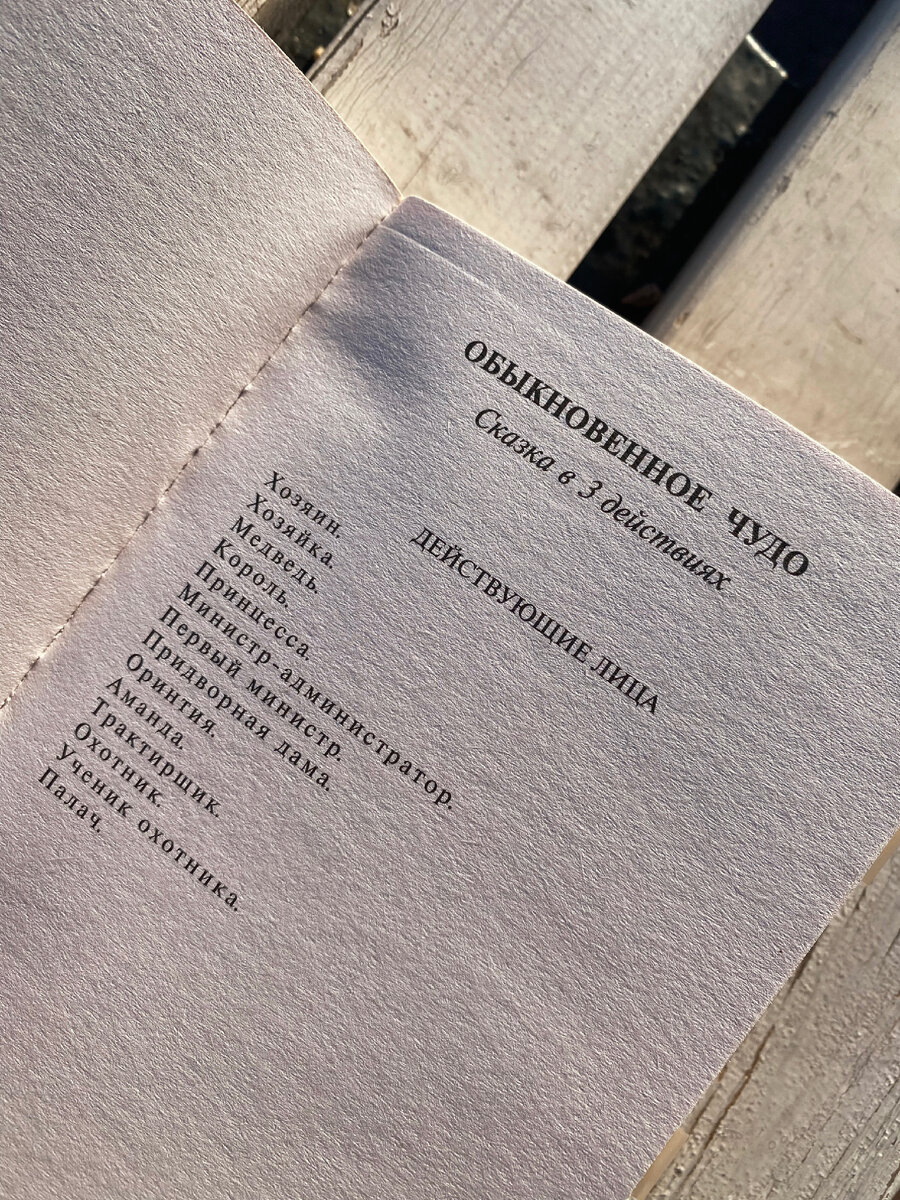 ОБЫКНОВЕННОЕ ЧУДО
Сказка в 3 действиях
ДЕЙСТВУЮЩИЕ ЛИЦА
Хозяин.
Хозяйка.
Медведь.
Король.
Принцесса.
Министр-администратор.
Первый министр.
Придворная дама.
Оринтия.
Аманда.
Трактирщик.
Охотник.
Ученик охотника.
Палач.